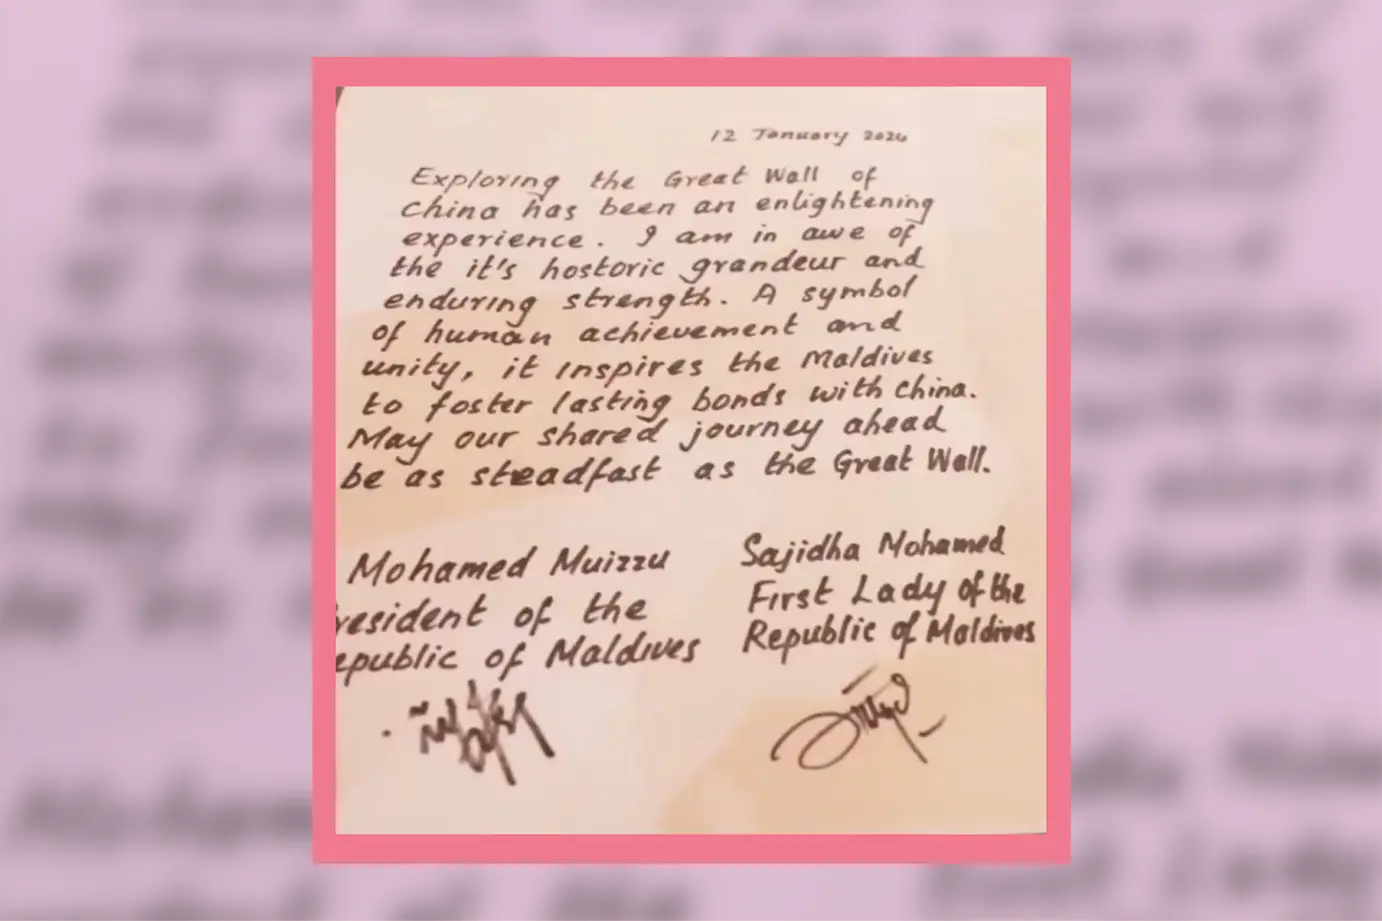 12 January 2024
Exploring the Great Wall of
China has been an enlightening
experience. I am in awe of
the it's hostoric grandeur and
enduring strength. A symbol
of human achievement and
unity, it inspires the Maldives
to foster lasting bonds with China.
May our shared journey ahead
be as steadfast as the Great Wall.
Mohamed Muizzu
resident of the
epublic of Maldives
Sajidha Mohamed
First Lady of the
Republic of Maldives